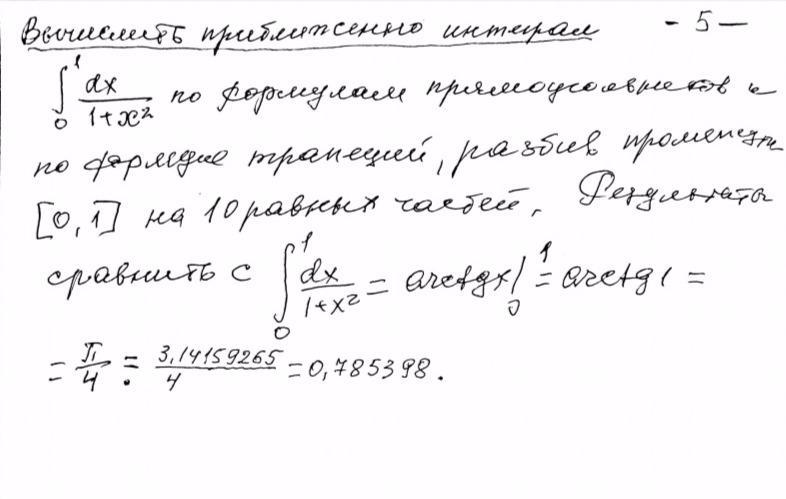 Вычислить приближенно интеграл - 5 -
∫₀¹ dx/(1+x²) по формулам прямоугольников и
по формуле трапеций, разбив промежуток
[0,1] на 10 равных частей. Результаты
сравнить с ∫₀¹ dx/(1+x²) = arctgx|₀¹ = arctg1 =
= π/4 = 3,14159265/4 = 0,785398.